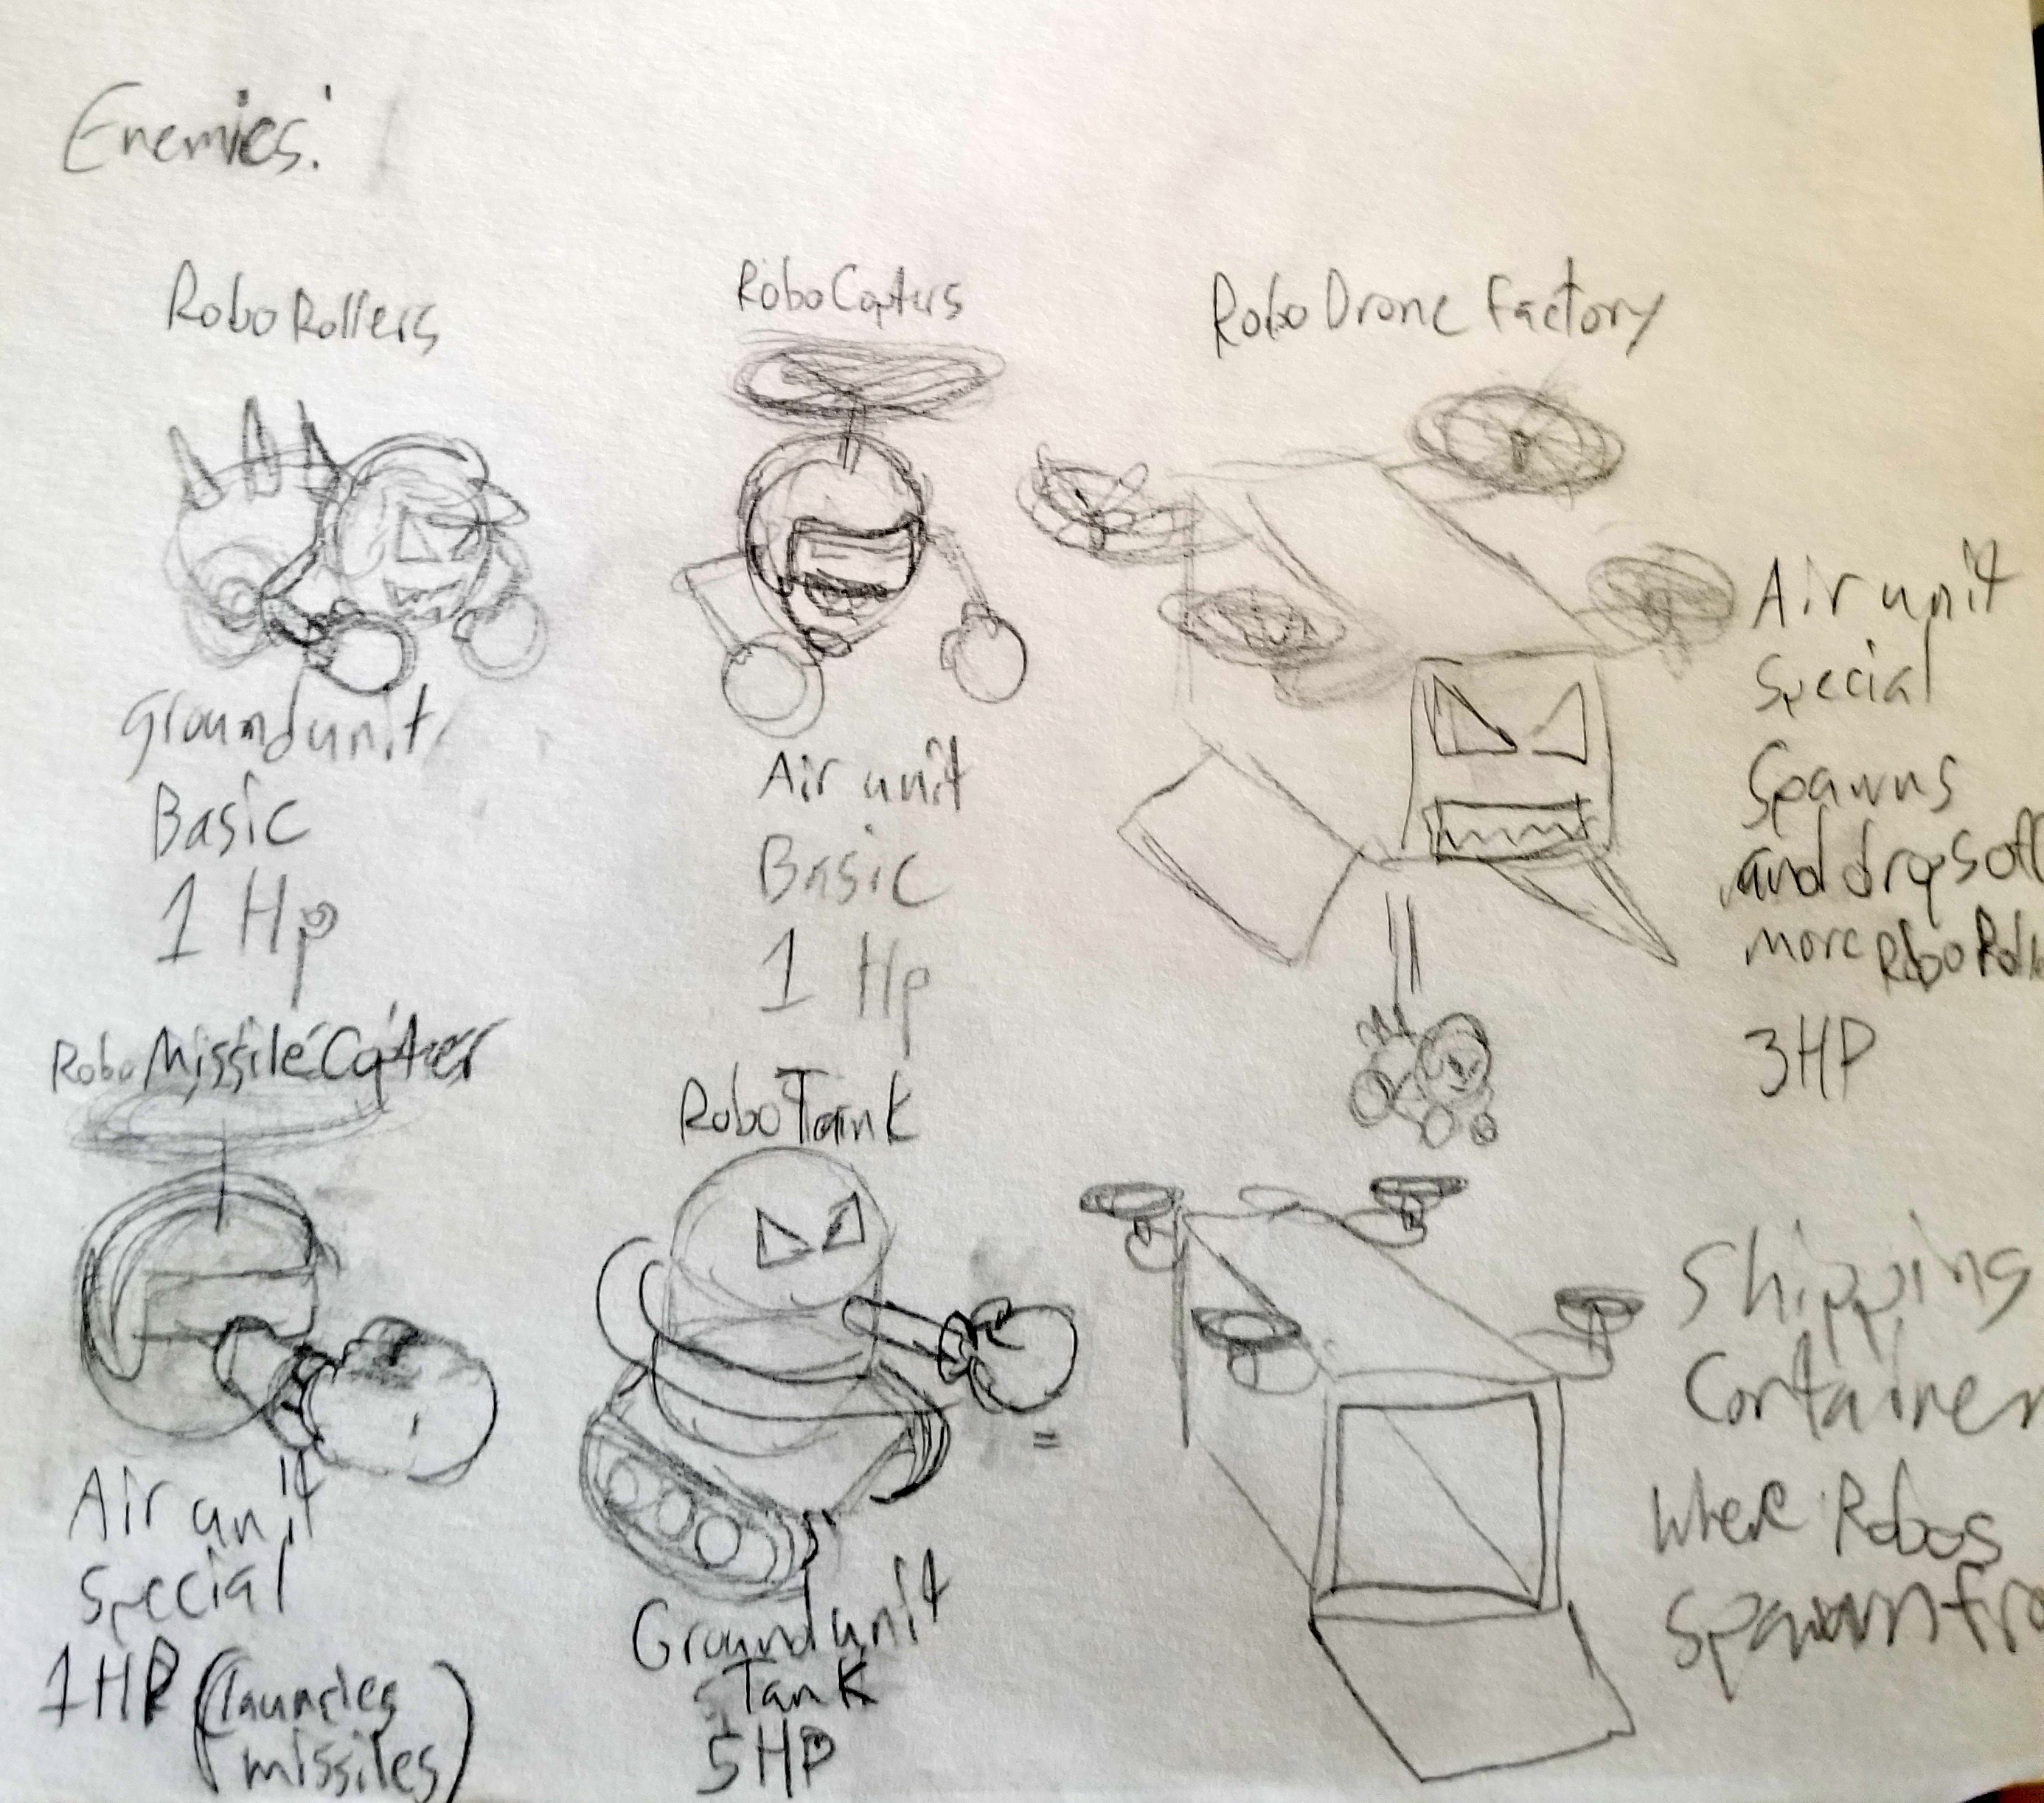 Enemies:
Robo Rollers
Ground unit
Basic
1 Hp
Robo Copters
Air unit
Basic
1 Hp
Robo Drone Factory
Air unit
Special
Spawns
and drops off
more Robo Roll
3HP
Robo Missile Copter
Air unit
Special
1HP (launches
missiles)
Robo Tank
Ground unit
Tank
5HP
Shipping
Container
Where Robos
Spawn fro